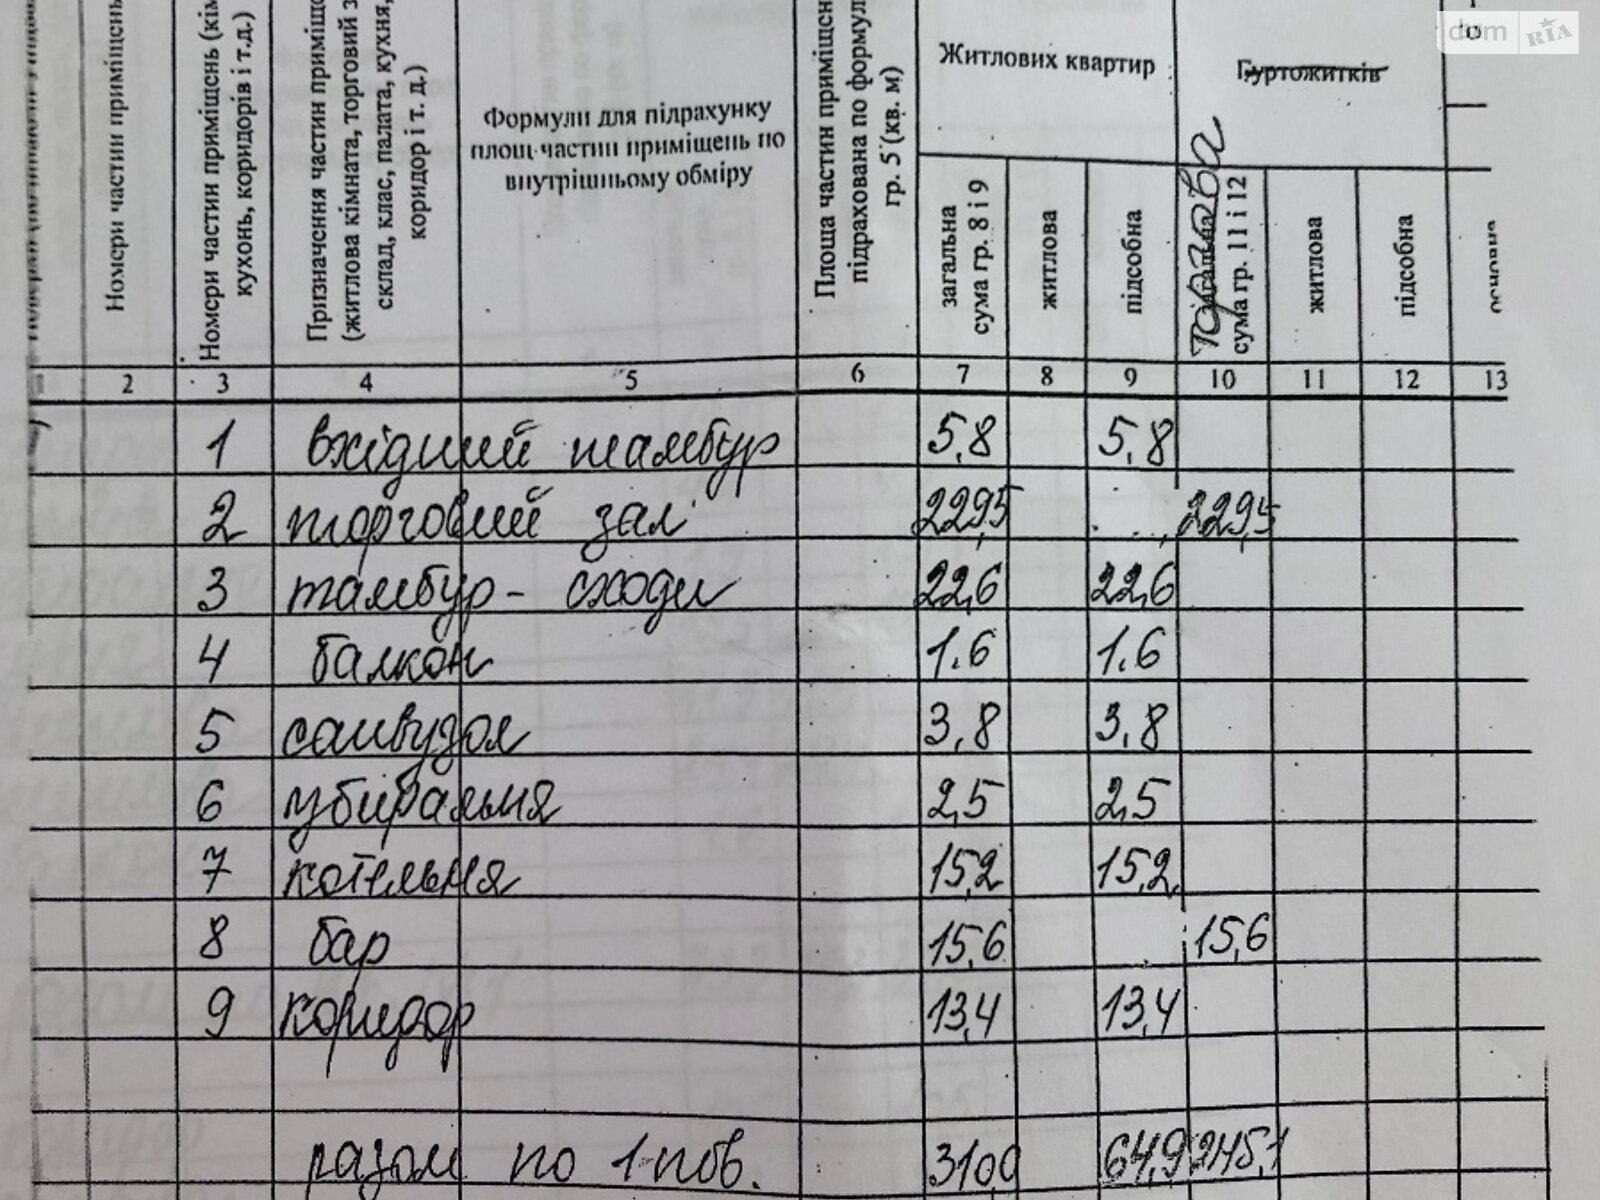 dom RIA
Номери частин приміщень
Номери частин приміщень (кім
кухонь, коридорів і т.д.)
Призначення частин приміще
(житлова кімната, торговий з
склад, клас, палата, кухня,
коридор і т. д.)
Формули для підрахунку
площ частин приміщень по
внутрішньому обміру
Площа частин приміщен
підрахована по формул
гр. 5 (кв. м)
Житлових квартир
загальна
сума гр. 8 і 9
житлова
підсобна
Гуртожитків
торгова
загальна
сума гр. 11 і 12
житлова
підсобна
основна
2 3 4 5 6 7 8 9 10 11 12 13
1 вхідний тамбур 5,8 5,8
2 торговий зал 229,5 229,5
3 тамбур - сходи 22,6 22,6
4 балкон 1.6 1.6
5 санвузол 3,8 3,8
6 убиральня 2,5 2,5
7 котельня 15,2 15,2
8 бар 15,6 15,6
9 коридор 13,4 13,4
разом по 1 пов. 310,0 64,9 245,1